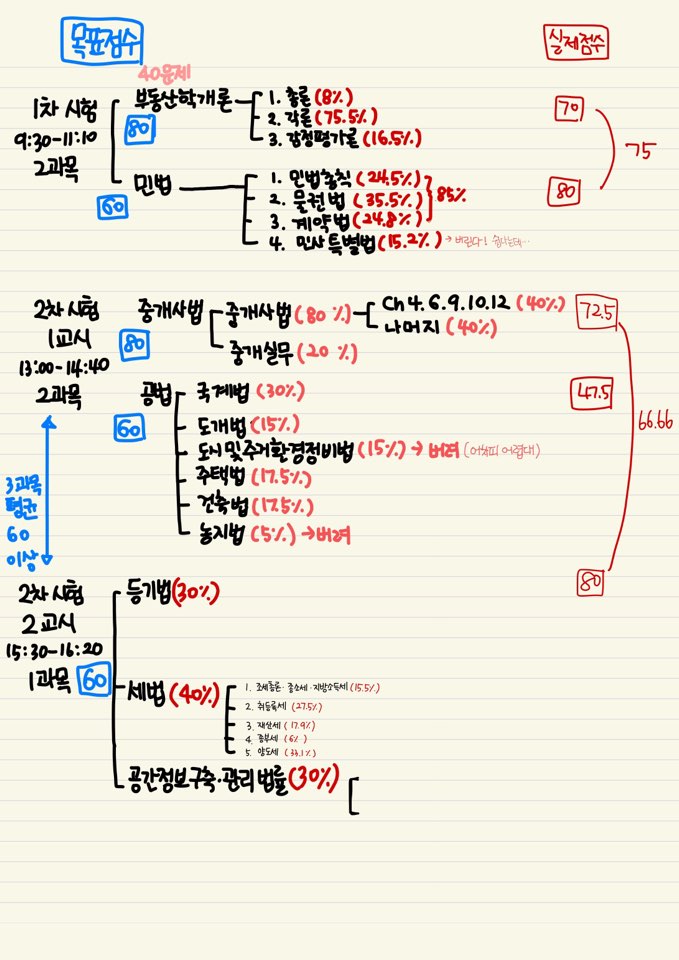 목표점수
실제점수
40문제
1차 시험
9:30-11:10
2과목
부동산학개론
80
1. 총론 (8%)
2. 각론 (75.5%)
3. 감정평가론 (16.5%)
70
75
민법
60
1. 민법총칙 (24.5%)
2. 물권법 (35.5%)
3. 계약법 (24.8%)
85%
4. 민사특별법 (15.2%) → 버린다! 쉽다는데...
80
2차 시험
1교시
13:00-14:40
2과목
중개사법
80
중개사법 (80%)
Ch 4.6.9.10.12 (40%)
나머지 (40%)
중개실무 (20%)
72.5
공법
60
국계법 (30%)
도개법 (15%)
도시및주거환경정비법 (15%) → 버려 (어차피 어렵대)
주택법 (17.5%)
건축법 (17.5%)
농지법 (5%) → 버려
47.5
66.66
3과목
평균
60
이상
2차 시험
2교시
15:30-16:20
1과목 60
등기법 (30%)
80
세법 (40%)
1. 조세총론·종소세·지방소득세 (15.5%)
2. 취등록세 (27.5%)
3. 재산세 (17.9%)
4. 종부세 (6%)
5. 양도세 (33.1%)
공간정보구축·관리법률 (30%)